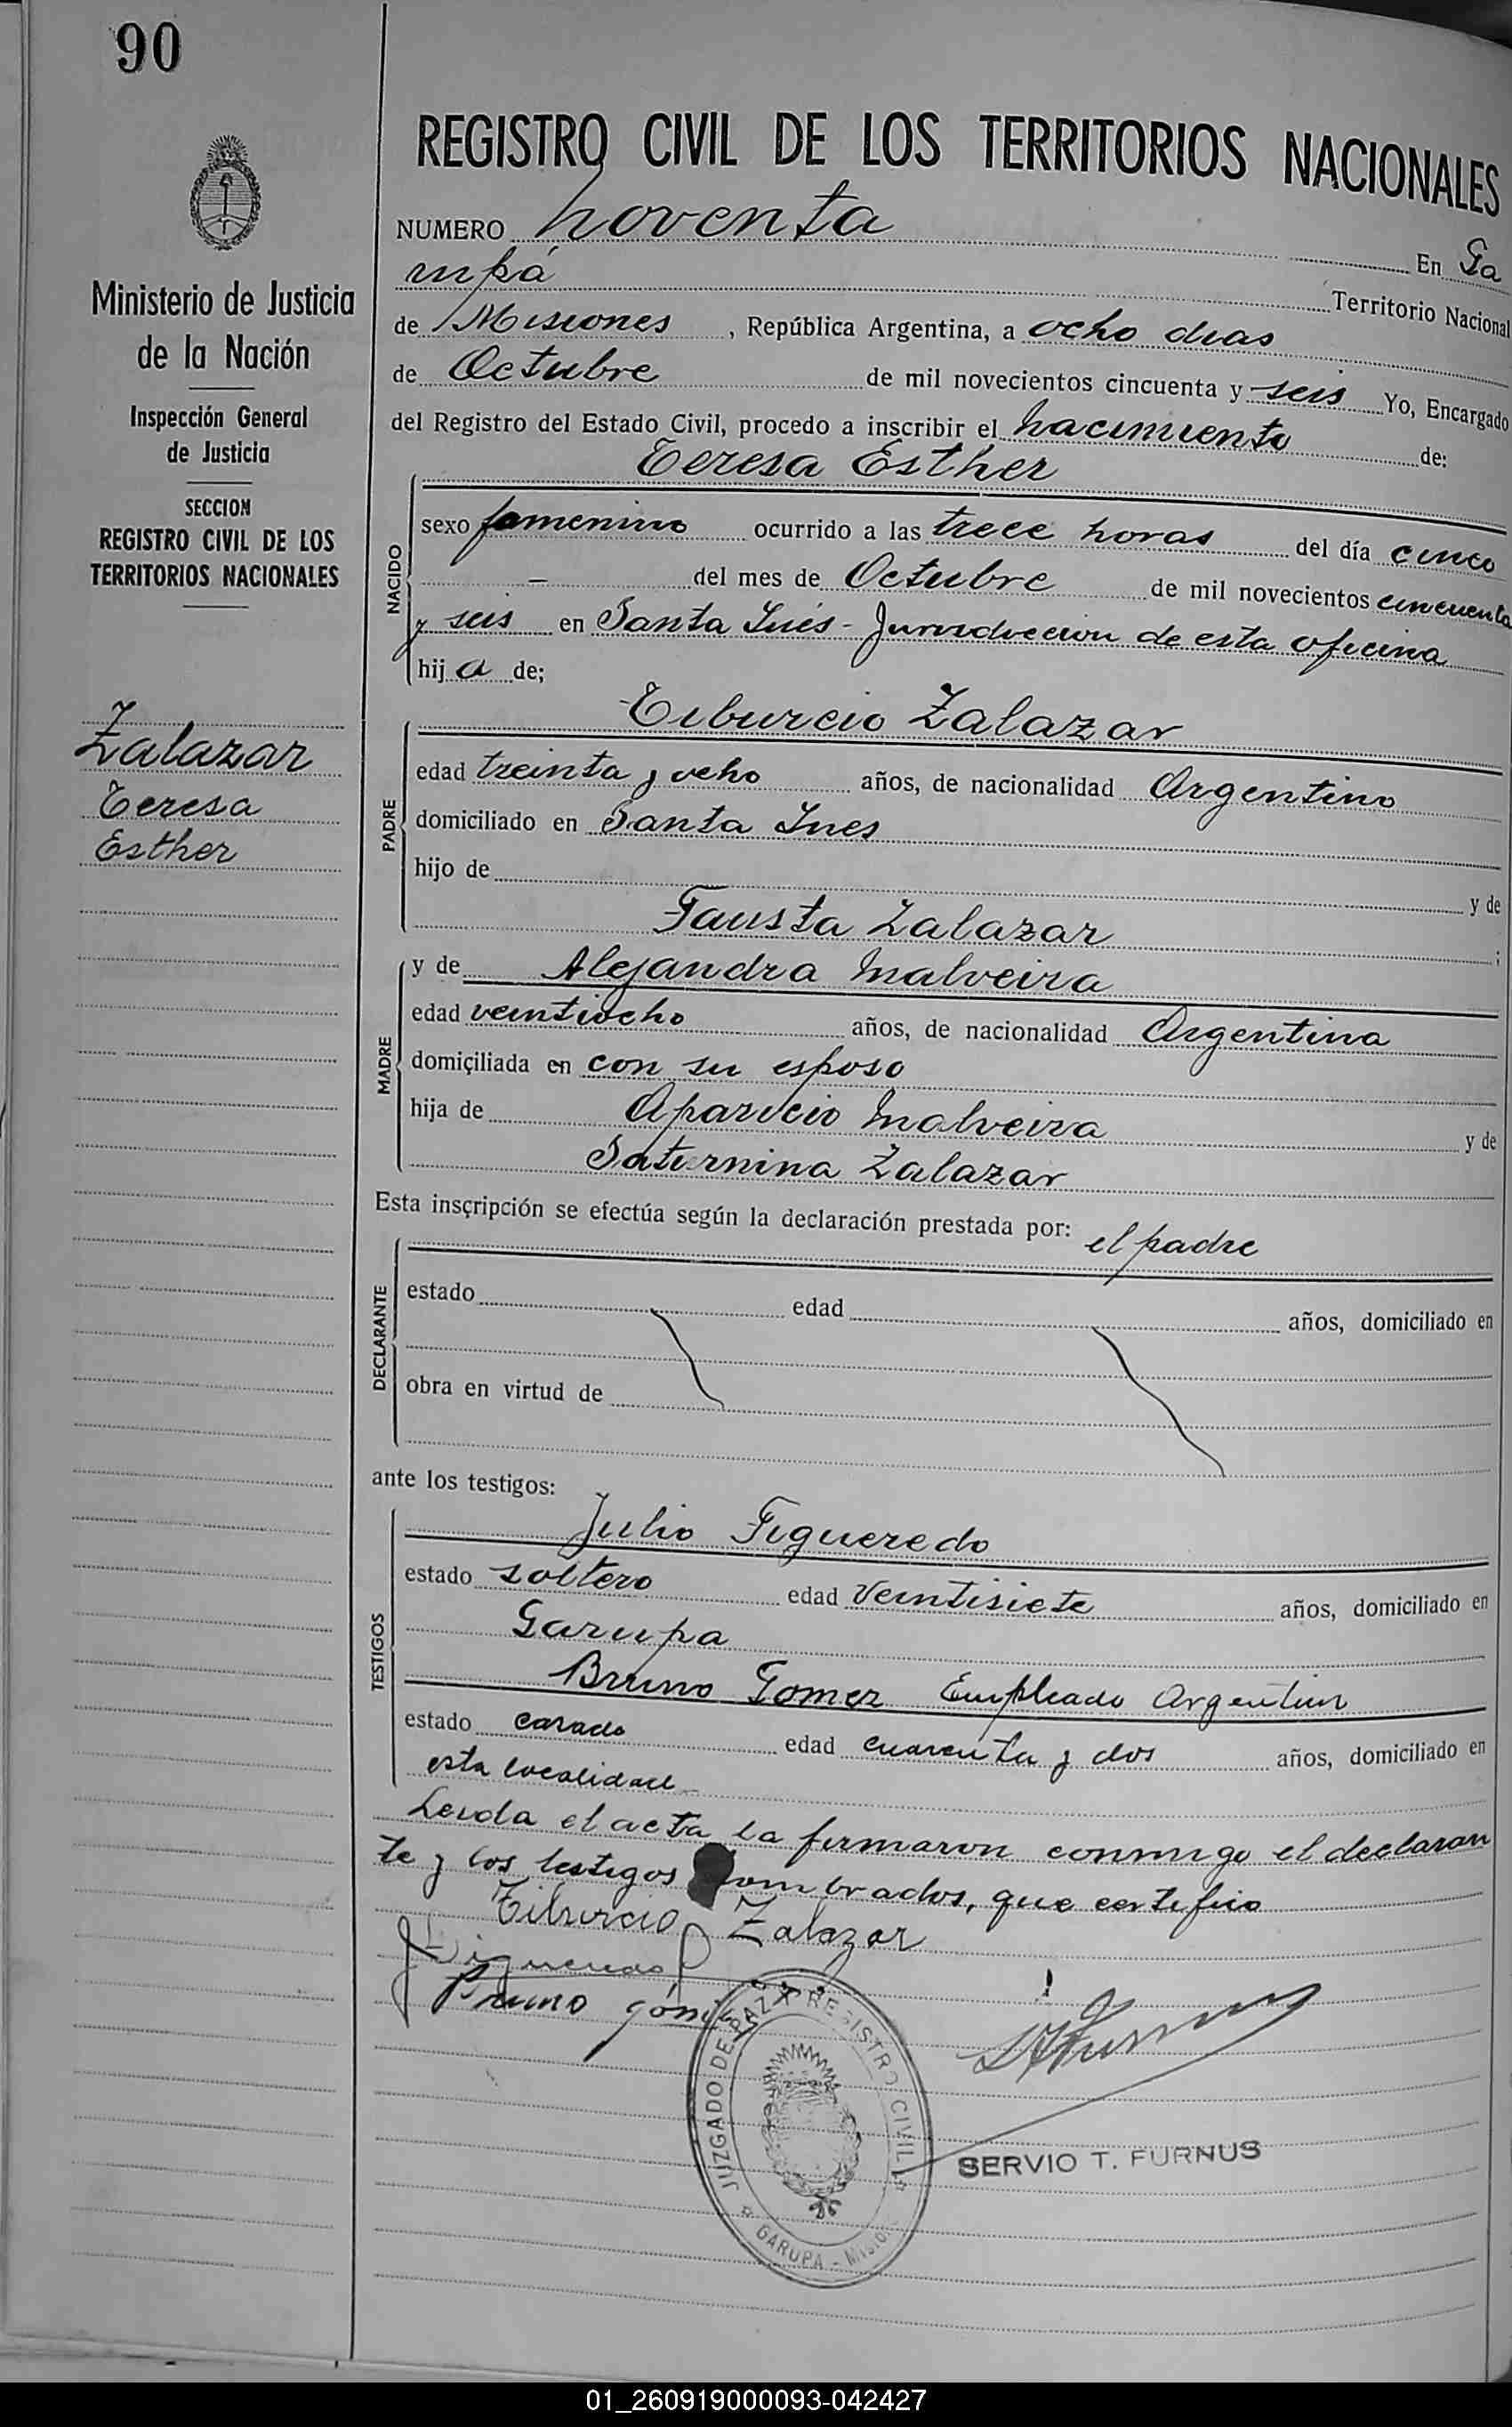 90
Ministerio de Justicia
de la Nación
Inspección General
de Justicia
SECCION
REGISTRO CIVIL DE LOS
TERRITORIOS NACIONALES
Zalazar
Teresa
Esther
REGISTRO CIVIL DE LOS TERRITORIOS NACIONALES
NUMERO noventa En Ga
rupá Territorio Nacional
de Misiones, República Argentina, a ocho dias
de Octubre de mil novecientos cincuenta y seis Yo, Encargado
del Registro del Estado Civil, procedo a inscribir el nacimiento de:
Teresa Esther
NACIDO
sexo femenino ocurrido a las trece horas del día cinco
— del mes de Octubre de mil novecientos cincuenta
y seis en Santa Inés - Jurisdiccion de esta oficina
hij a de;
Tiburcio Zalazar
PADRE
edad treinta y ocho años, de nacionalidad Argentino
domiciliado en Santa Ines
hijo de y de
Fausta Zalazar ;
MADRE
y de Alejandra Malveira
edad veintiocho años, de nacionalidad Argentina
domiciliada en con su esposo
hija de Aparicio Malveira y de
Saturnina Zalazar
Esta inscripción se efectúa según la declaración prestada por: el padre
DECLARANTE
estado edad años, domiciliado en
obra en virtud de
ante los testigos:
TESTIGOS
Julio Figueredo
estado soltero edad veintisiete años, domiciliado en
Garupa
Bruno Gomez Empleado Argentino
estado casado edad cuarenta y dos años, domiciliado en
esta localidad
Leida el acta la firmaron conmigo el declaran
te y los testigos nombrados, que certifico
Tiburcio Zalazar
J Figueredo
Bruno Gómez
JUZGADO DE PAZ Y REGISTRO CIVIL
GARUPA - Misiones
SERVIO T. FURNUS
01_260919000093-042427